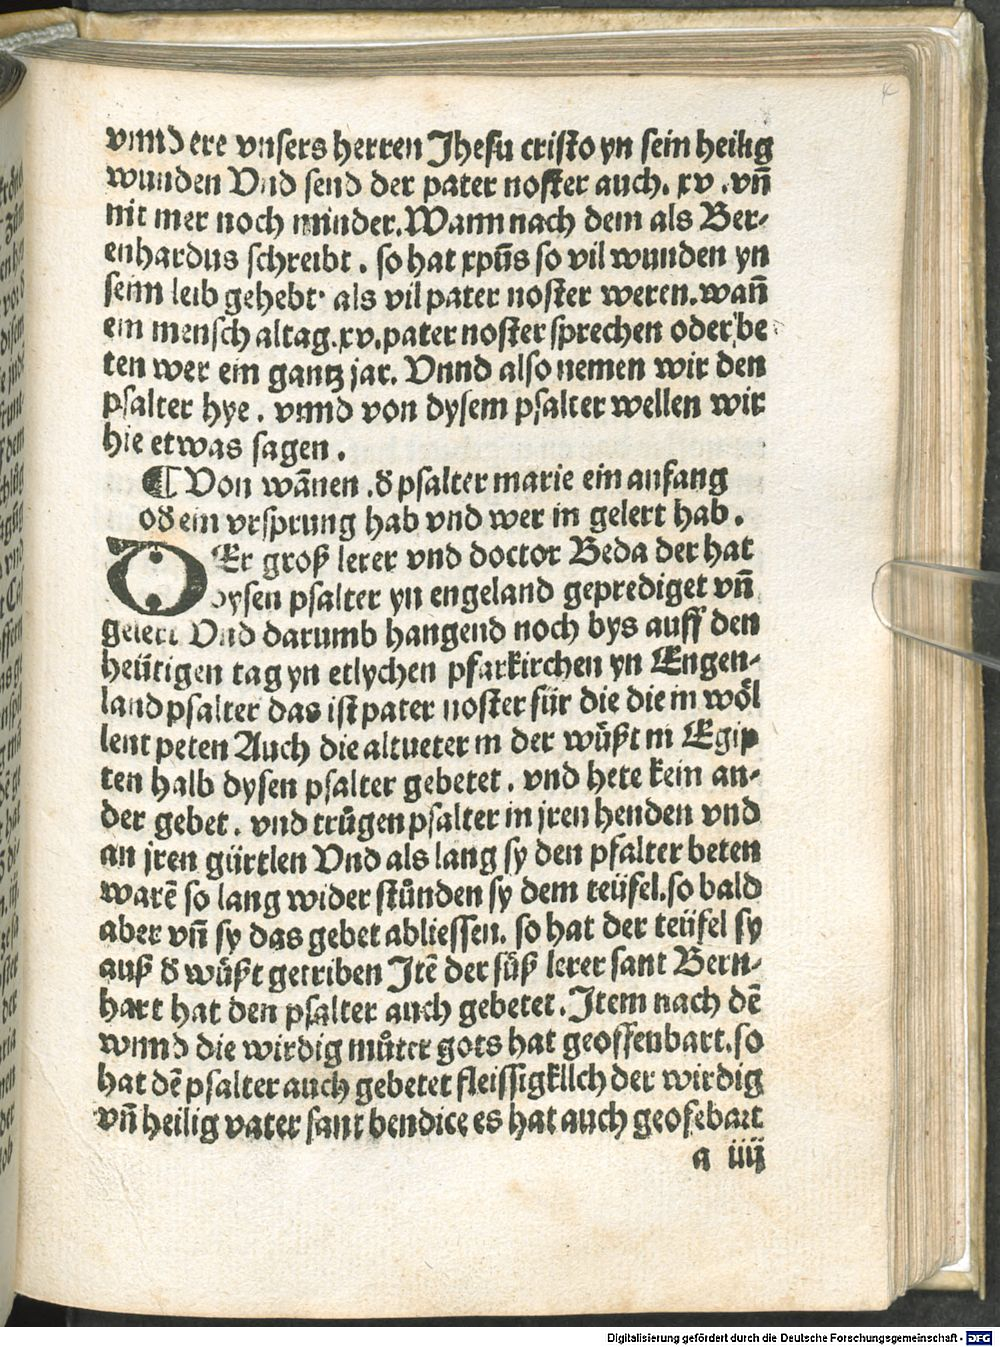 vnnd ere vnsers herren Jhesu cristo yn sein heilig
wunden Vnd send der pater noster auch. xv .vn̄
nit mer noch minder. Wann nach dem als Ber-
enhardus schreibt . so hat xpūs so vil wunden yn
seim leib gehebt· als vil pater noster weren. wan̄
ein mensch altag. xv. pater noster sprechen oder be
ten wer ein gantz jar. Vnnd also nemen wir den
psalter hye . vnnd von dysem psalter wellen wir
hie etwas sagen .
¶ Von wānen .đ psalter marie ein anfang
ođ ein vrsprung hab vnd wer in gelert hab .
DEr groß lerer vnd doctor Beda der hat
dysen psalter yn engeland geprediget vn̄
gelert Vnd darumb hangend noch bys auff den
heütigen tag yn etlychen pfarkirchen yn Engen-
land psalter das ist pater noster für die die in wöl
lent peten Auch die altueter in der wüßt in Egip
ten halb dysen psalter gebetet . vnd hete kein an-
der gebet . vnd trůgen psalter in jren henden vnd
an jren gürtlen Vnd als lang sy den psalter beten
warē so lang wider stůnden sy dem teüfel. so bald
aber vn̄ sy das gebet abliessen. so hat der teüfel sy
auß đ wůßt getriben Jtē der süß lerer sant Bern-
hart hat den psalter auch gebetet. Jtem nach dē
wnnd die wirdig můter gots hat geoffenbart. so
hat dē psalter auch gebetet fleissigkllch der wirdig
vn̄ heilig vater sant bendice es hat auch geofebart
a iiij
Digitalisierung gefördert durch die Deutsche Forschungsgemeinschaft - DFG